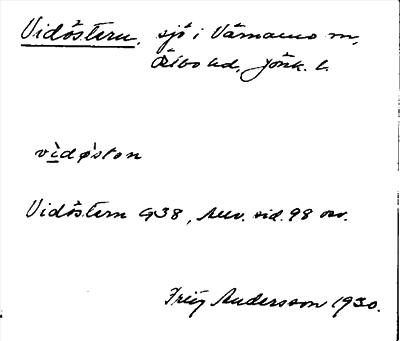 Vidöstern, sjö i Värnamo m,
Östbo hd, Jönk. l.
vìdø̀ston
Vidöstern G38, sid. 98 ov.
Andersson 1930.